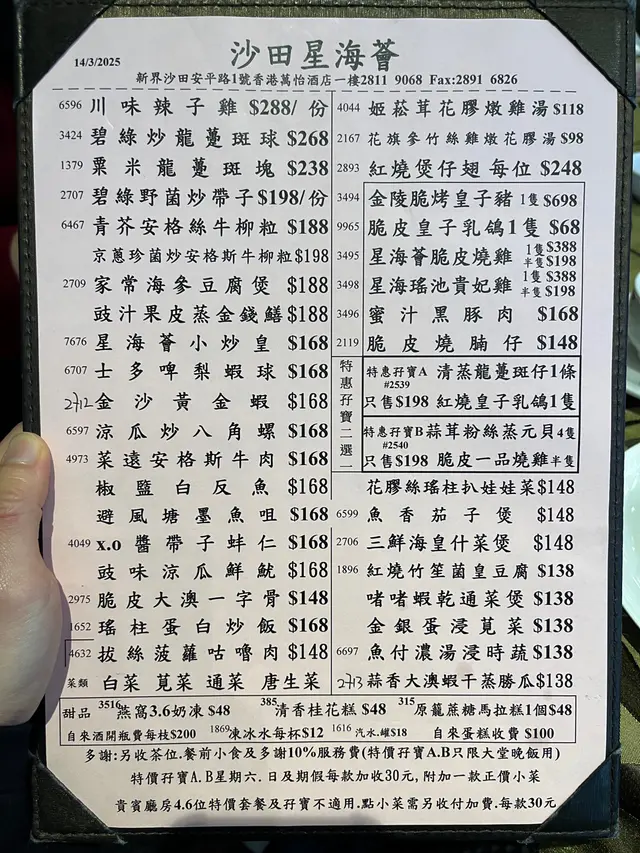 14/3/2025
沙田星海薈
新界沙田安平路1號香港萬怡酒店一樓2811 9068 Fax:2891 6826
6596 川味辣子雞 $288/份
3424 碧綠炒龍躉斑球 $268
1379 粟米龍躉斑塊 $238
2707 碧綠野菌炒帶子 $198/份
6467 青芥安格絲牛柳粒 $188
京蔥珍菌炒安格斯牛柳粒 $198
2709 家常海參豆腐煲 $188
豉汁果皮蒸金錢鱔 $188
7676 星海薈小炒皇 $168
6707 士多啤梨蝦球 $168
2712 金沙黃金蝦 $168
6597 涼瓜炒八角螺 $168
4973 菜遠安格斯牛肉 $168
椒鹽白反魚 $168
避風塘墨魚咀 $168
4049 x.o 醬帶子蚌仁 $168
豉味涼瓜鮮魷 $168
2975 脆皮大澳一字骨 $148
1652 瑤柱蛋白炒飯 $168
4632 拔絲菠蘿咕嚕肉 $148
菜類 白菜 莧菜 通菜 唐生菜
4044 姬菘茸花膠燉雞湯 $118
2167 花旗參竹絲雞燉花膠湯 $98
2893 紅燒煲仔翅 每位 $248
3494 金陵脆烤皇子豬 1隻 $698
9965 脆皮皇子乳鴿1隻 $68
3495 星海薈脆皮燒雞 1隻 $388 半隻 $198
3498 星海瑤池貴妃雞 1隻 $388 半隻 $198
3496 蜜汁黑豚肉 $168
2119 脆皮燒腩仔 $148
特惠孖寶二選一
特惠孖寶A 清蒸龍躉斑仔1條
#2539
只售$198 紅燒皇子乳鴿1隻
特惠孖寶B 蒜茸粉絲蒸元貝4隻
#2540
只售$198 脆皮一品燒雞半隻
花膠絲瑤柱扒娃娃菜 $148
6599 魚香茄子煲 $148
2706 三鮮海皇什菜煲 $148
1896 紅燒竹笙菌皇豆腐 $138
啫啫蝦乾通菜煲 $138
金銀蛋浸莧菜 $138
6697 魚付濃湯浸時蔬 $138
2713 蒜香大澳蝦干蒸勝瓜 $138
甜品 3516 燕窩3.6奶凍 $48 385 清香桂花糕 $48 315 原籠蔗糖馬拉糕1個 $48
自來酒開瓶費每枝$200 1869 凍冰水每杯$12 1616 汽水.罐$18 自來蛋糕收費 $100
多謝:另收茶位.餐前小食及多謝10%服務費(特價孖寶A.B只限大堂晚飯用)
特價孖寶A.B星期六.日及期假每款加收30元,附加一款正價小菜
貴賓廳房4.6位特價套餐及孖寶不適用.點小菜需另收付加費.每款30元